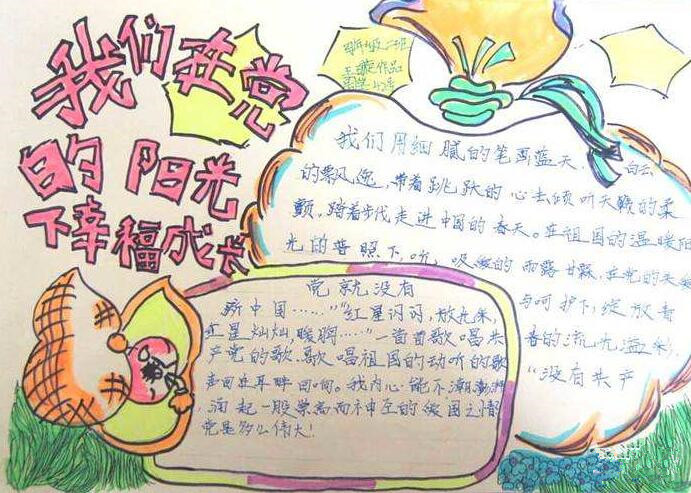 我们在党
的阳光
下幸福成长
二班
作品
我们用细腻的笔画蓝天、白云
的飘逸,带着跳跃的心去倾听天籁的柔
颤,踏着步伐走进中国的春天。在祖国的温暖阳
光的普照下,听,吸吮的雨露甘霖,在党的关怀
与呵护下,绽放青
春的流光溢彩,
"没有共产
党就没有
新中国……""红星闪闪,放光采,
红星灿灿,暖胸……"一首首歌唱共
产党的歌,歌唱祖国的动听的歌
声回在耳畔回响。我内心能不潮澎湃
,涌起一股崇高而神圣的爱国之情
党是多么伟大!